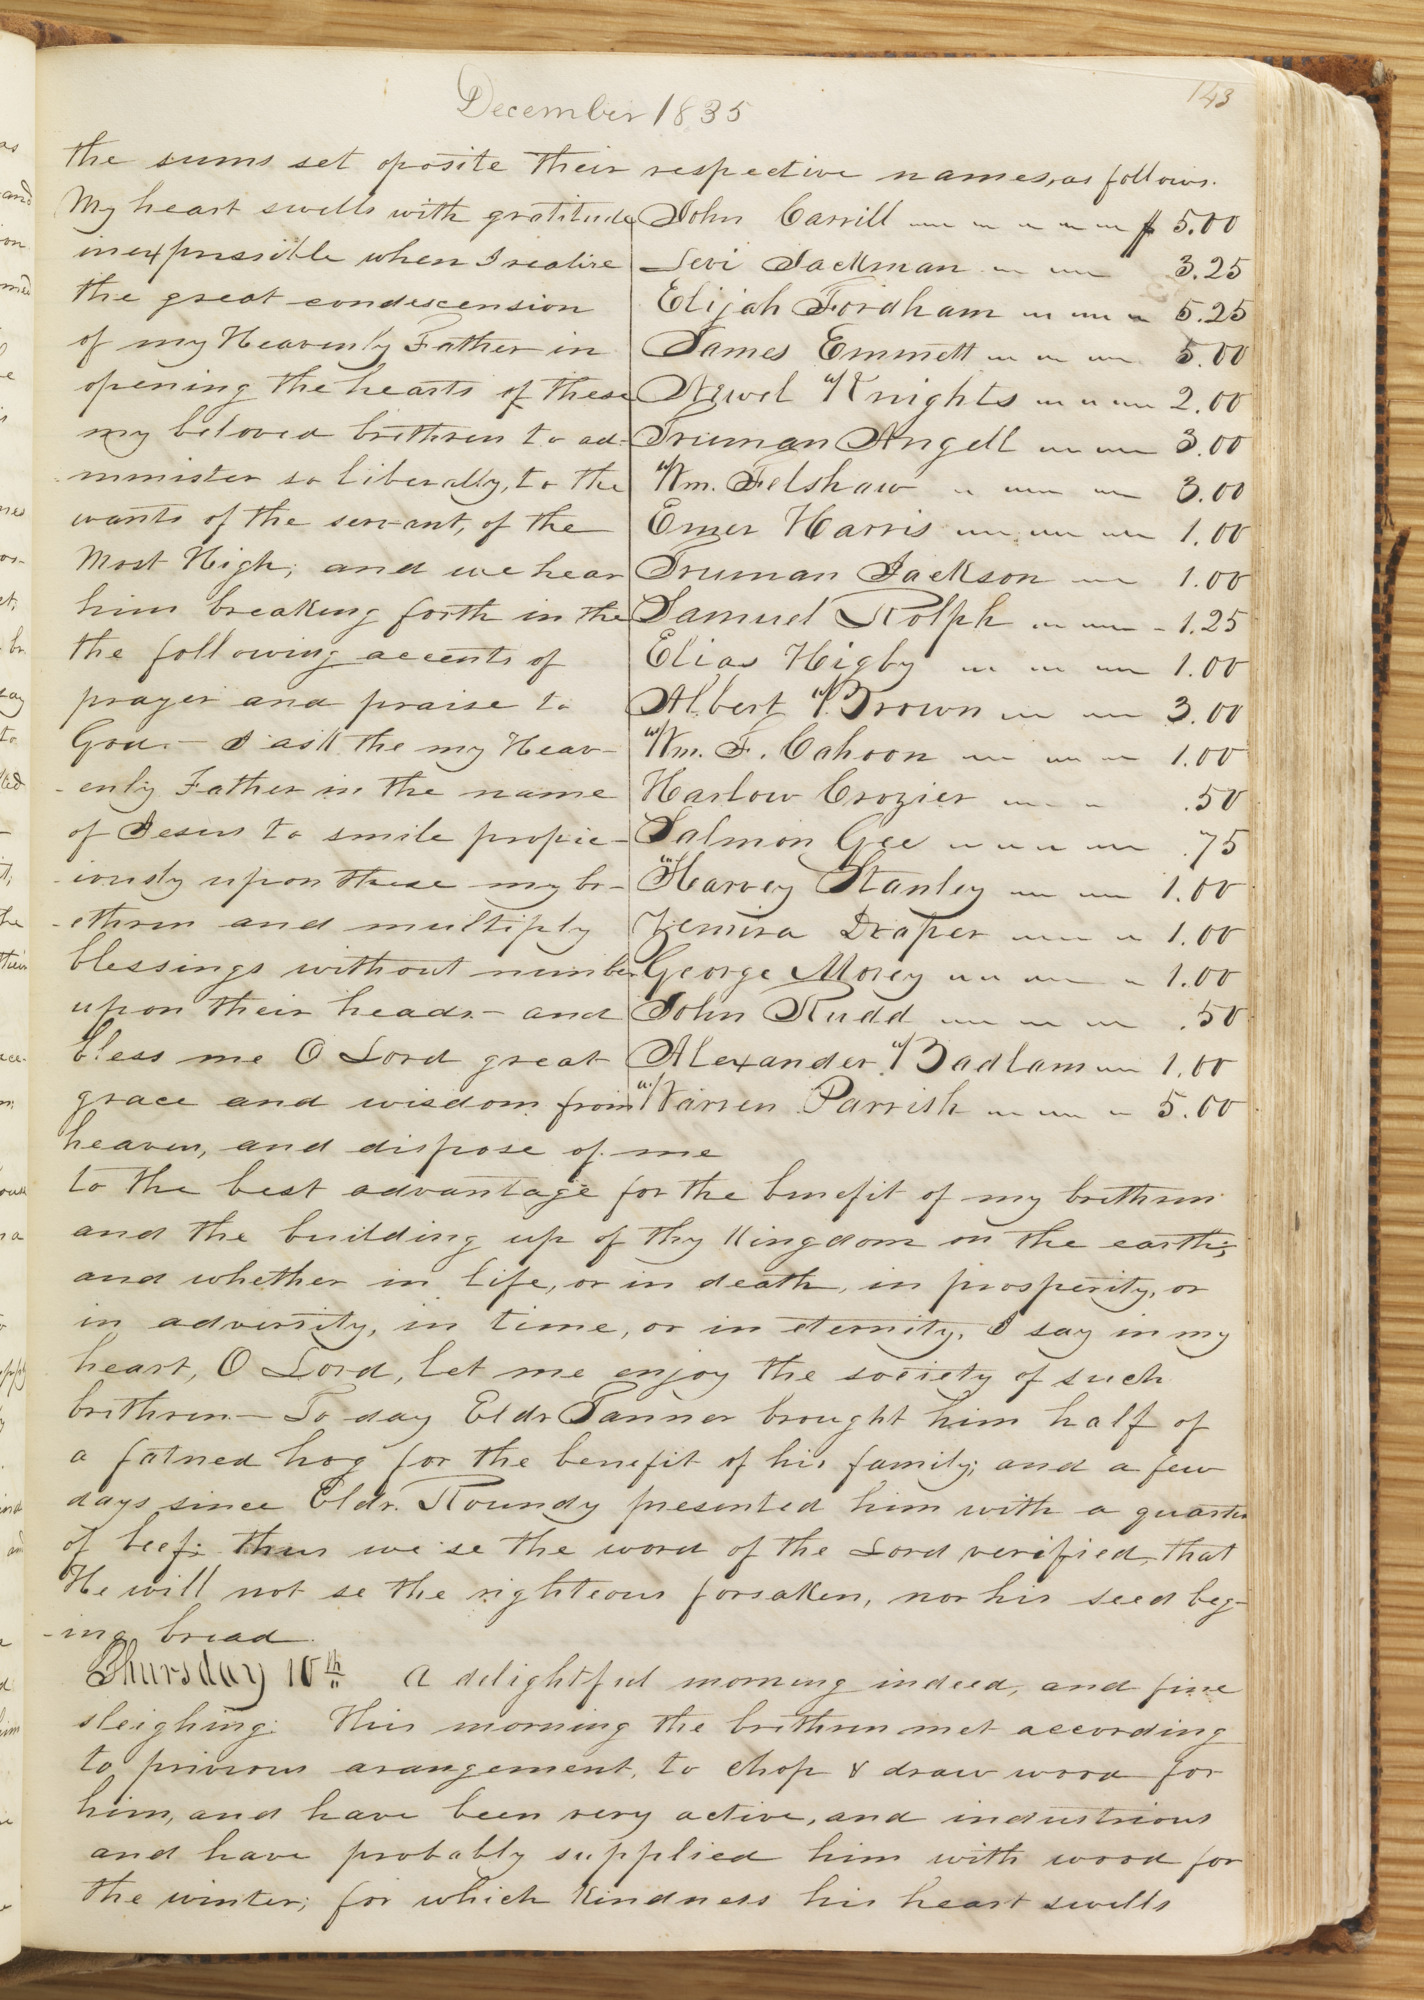 December 1835
143
the sums set oposite their respective names, as follows.
My heart swells with gratitude
inexpressible when I realize
the great condescension
of my Heavenly Father in
opening the hearts of these
my beloved brethren to ad-
minister so liberally, to the
wants of the servant, of the
Most High; and we hear
him breaking forth in the
the following accents of
prayer and praise to
God.— I ask the my Heav-
-enly Father in the name
of Jesus to smile propic-
-iously upon these my br-
-ethren and multiply
blessings without number
upon their heads.— and
bless me O Lord great
grace and wisdom from
heaven, and dispose of me
John Carrill $ 5.00
Levi Jackman 3.25
Elijah Fordham 5.25
James Emmett 5.00
Newel Knights 2.00
Truman Angell 3.00
Wm. Felshaw 3.00
Emer Harris 1.00
Truman Jackson 1.00
Samuel Rolph 1.25
Elias Higby 1.00
Albert Brown 3.00
Wm. F. Cahoon 1.00
Harlow Crozier .50
Salmon Gee .75
Harvey Stanley 1.00
Zemira Draper 1.00
George Morey 1.00
John Rudd .50
Alexander Badlam 1.00
Warren Parrish 5.00
to the best advantage for the benefit of my brethren
and the building up of thy Kingdom on the earth;
and whether in life, or in death, in prosperity, or
in adversity, in time, or in eternity, I say in my
heart, O Lord, let me enjoy the society of such
brethren.— To day Eldr Tanner brought him half of
a fatned hog for the benefit of his family; and a few
days since Eldr. Roundy presented him with a quarter
of beef; thus we se the word of the Lord verified, that
He will not se the righteous forsaken, nor his seed beg-
-ing bread.
Thursday 10th A delightful morning indeed, and fine
sleighing: This morning the brethren met according
to privious arangement, to chop & draw wood for
him, and have been very active, and industrious
and have probably supplied him with wood for
the winter; for which kindness his heart swells